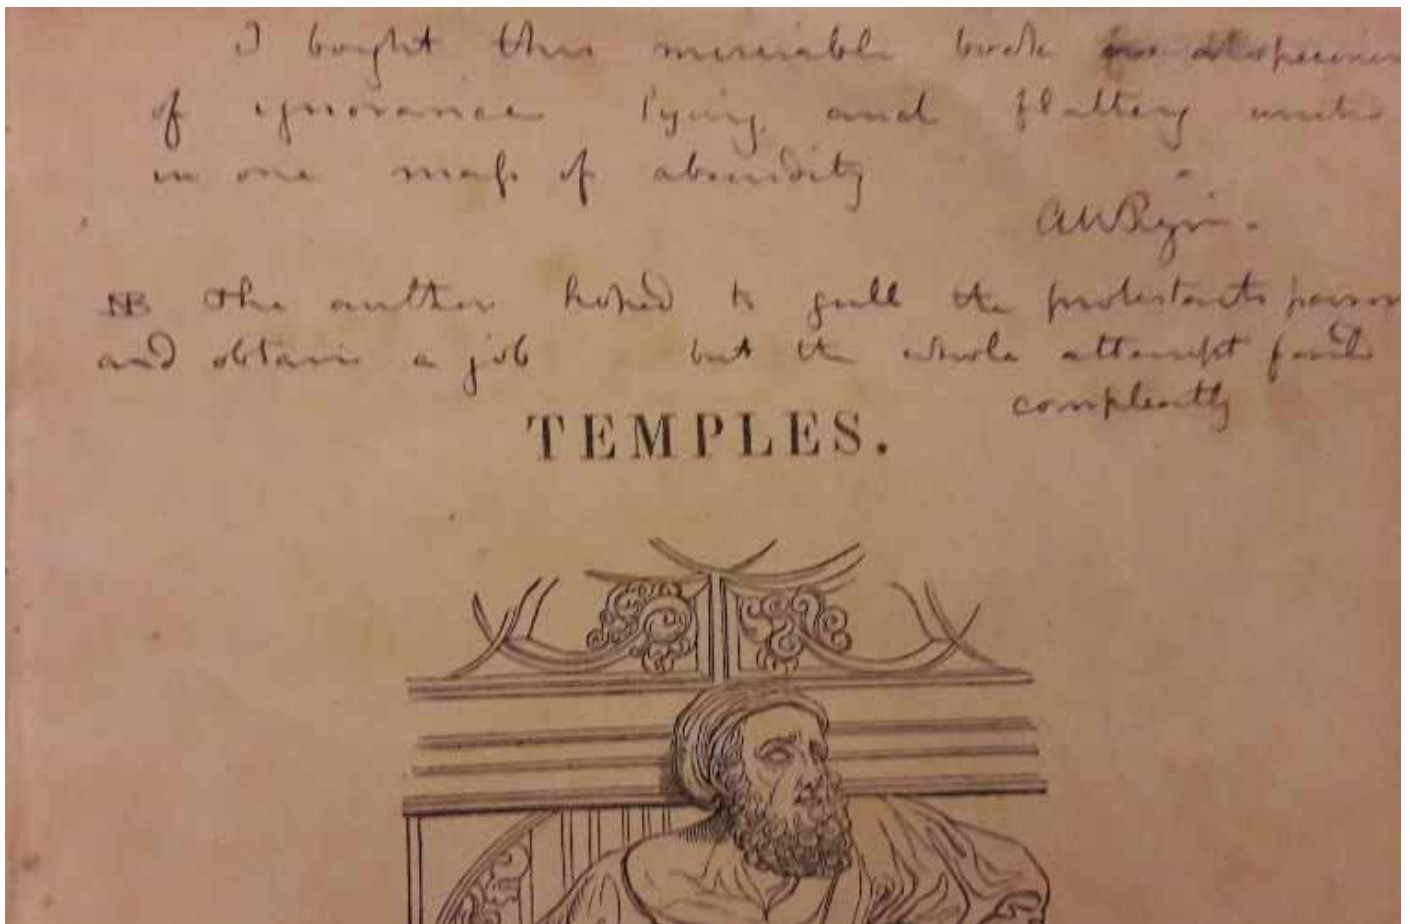 I bought this miserable book as a specimen
of ignorance lying and flattery united
in one maſs of absurdity
AWPugin.
NB The author hoped to gull the protestants parsons
and obtain a job but the whole attempt faild
compleatly
TEMPLES.